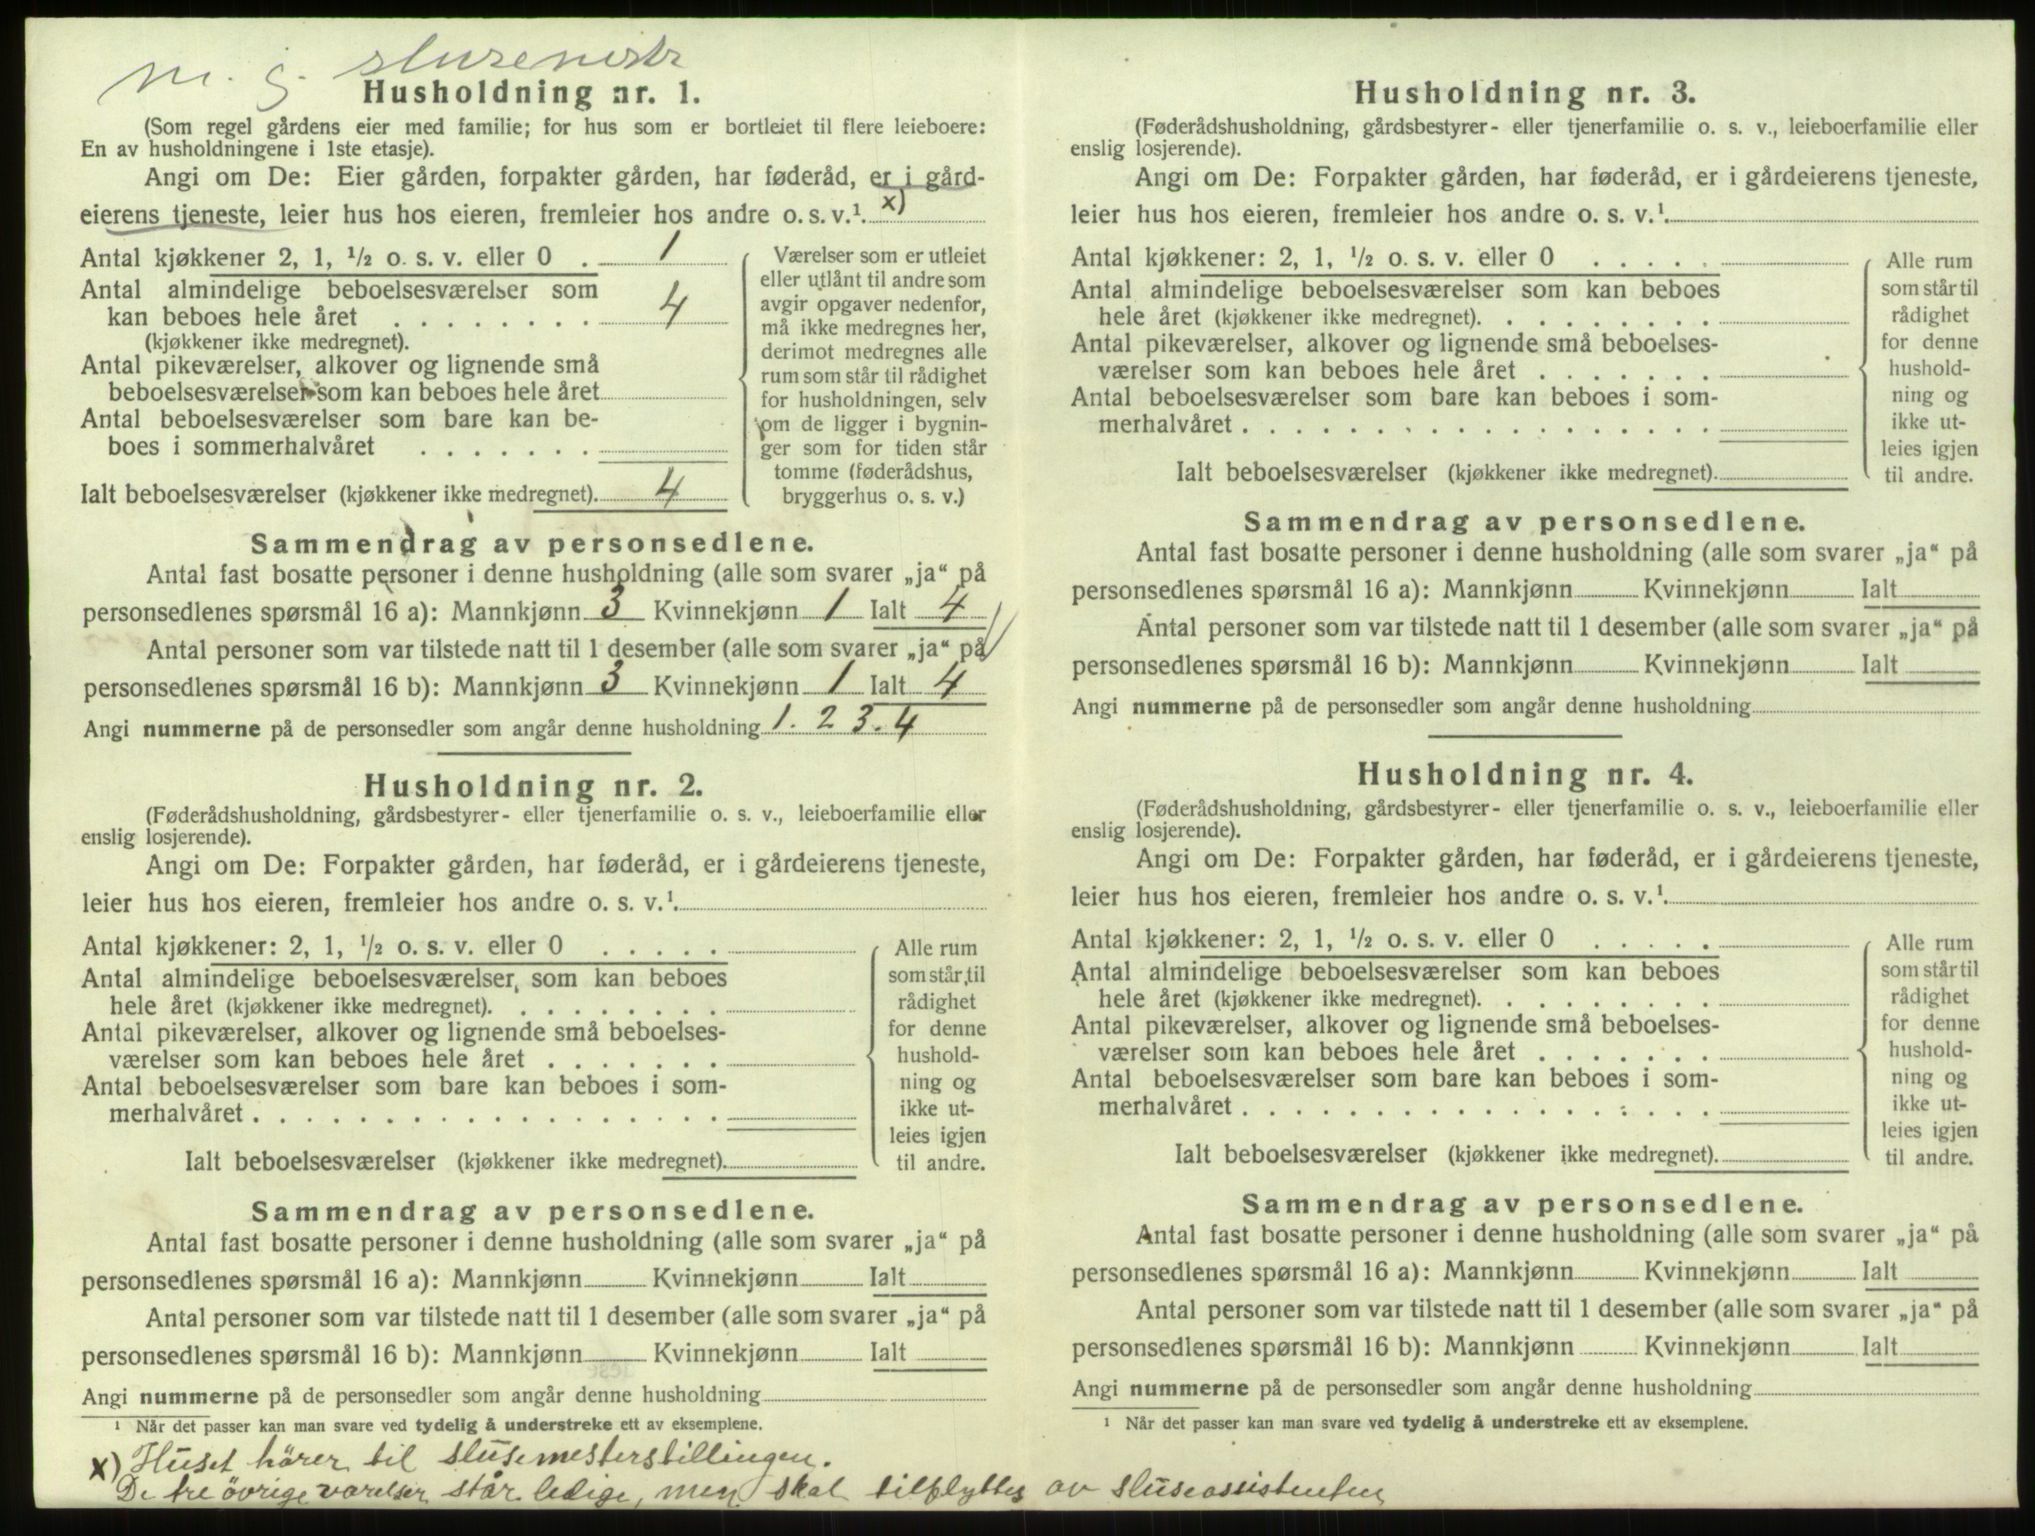 m. g. slusemstr
Husholdning nr. 1.
(Som regel gårdens eier med familie; for hus som er bortleiet til flere leieboere:
En av husholdningene i 1ste etasje).
Angi om De: Eier gården, forpakter gården, har føderåd, er i gård-
eierens tjeneste, leier hus hos eieren, fremleier hos andre o. s. v.¹. x)
Antal kjøkkener 2, 1, ½ o. s. v. eller 0 . 1
Antal almindelige beboelsesværelser som
kan beboes hele året . . . . . . . . 4
(kjøkkener ikke medregnet).
Antal pikeværelser, alkover og lignende små
beboelsesværelser som kan beboes hele året
Antal beboelsesværelser som bare kan be-
boes i sommerhalvåret . . . . . . .
Ialt beboelsesværelser (kjøkkener ikke medregnet). 4
Værelser som er utleiet
eller utlånt til andre som
avgir opgaver nedenfor,
må ikke medregnes her,
derimot medregnes alle
rum som står til rådighet
for husholdningen, selv
om de ligger i bygnin-
ger som for tiden står
tomme (føderådshus,
bryggerhus o. s. v.)
Sammendrag av personsedlene.
Antal fast bosatte personer i denne husholdning (alle som svarer „ja“ på
personsedlenes spørsmål 16 a): Mannkjønn 3 Kvinnekjønn 1 Ialt 4
Antal personer som var tilstede natt til 1 desember (alle som svarer „ja“ på
personsedlenes spørsmål 16 b): Mannkjønn 3 Kvinnekjønn 1 Ialt 4
Angi nummerne på de personsedler som angår denne husholdning 1. 2 3. 4
Husholdning nr. 2.
(Føderådshusholdning, gårdsbestyrer- eller tjenerfamilie o. s. v., leieboerfamilie eller
enslig losjerende).
Angi om De: Forpakter gården, har føderåd, er i gårdeierens tjeneste,
leier hus hos eieren, fremleier hos andre o. s. v.¹.
Antal kjøkkener: 2, 1, ½ o. s. v. eller 0 . . . . .
Antal almindelige beboelsesværelser, som kan beboes
hele året (kjøkkener ikke medregnet). . . . . . . . .
Antal pikeværelser, alkover og lignende små beboelses-
værelser som kan beboes hele året . . . . . . .
Antal beboelsesværelser som bare kan beboes i som-
merhalvåret . . . . . . . . . . . . . . . . . .
Ialt beboelsesværelser (kjøkkener ikke medregnet).
Alle rum
som står til
rådighet
for denne
hushold-
ning og
ikke ut-
leies igjen
til andre.
Sammendrag av personsedlene.
Antal fast bosatte personer i denne husholdning (alle som svarer „ja“ på
personsedlenes spørsmål 16 a): Mannkjønn Kvinnekjønn Ialt
Antal personer som var tilstede natt til 1 desember (alle som svarer „ja“ på
personsedlenes spørsmål 16 b): Mannkjønn Kvinnekjønn Ialt
Angi nummerne på de personsedler som angår denne husholdning
¹ Når det passer kan man svare ved tydelig å understreke ett av eksemplene.
x) Huset hörer til slusemesterstillingen.
De tre övrige værelser står ledige, men skal tilflyttes av sluseassistenten
Husholdning nr. 3.
(Føderådshusholdning, gårdsbestyrer- eller tjenerfamilie o. s. v., leieboerfamilie eller
enslig losjerende).
Angi om De: Forpakter gården, har føderåd, er i gårdeierens tjeneste,
leier hus hos eieren, fremleier hos andre o. s. v.¹.
Antal kjøkkener: 2, 1, ½ o. s. v. eller 0 . . . . .
Antal almindelige beboelsesværelser som kan beboes
hele året (kjøkkener ikke medregnet). . . . . . . . .
Antal pikeværelser, alkover og lignende små beboelses-
værelser som kan beboes hele året . . . . . . .
Antal beboelsesværelser som bare kan beboes i som-
merhalvåret . . . . . . . . . . . . . . . . . .
Ialt beboelsesværelser (kjøkkener ikke medregnet).
Alle rum
som står til
rådighet
for denne
hushold-
ning og
ikke ut-
leies igjen
til andre.
Sammendrag av personsedlene.
Antal fast bosatte personer i denne husholdning (alle som svarer „ja“ på
personsedlenes spørsmål 16 a): Mannkjønn Kvinnekjønn Ialt
Antal personer som var tilstede natt til 1 desember (alle som svarer „ja“ på
personsedlenes spørsmål 16 b): Mannkjønn Kvinnekjønn Ialt
Angi nummerne på de personsedler som angår denne husholdning
Husholdning nr. 4.
(Føderådshusholdning, gårdsbestyrer- eller tjenerfamilie o. s. v., leieboerfamilie eller
enslig losjerende).
Angi om De: Forpakter gården, har føderåd, er i gårdeierens tjeneste,
leier hus hos eieren, fremleier hos andre o. s. v.¹.
Antal kjøkkener: 2, 1, ½ o. s. v. eller 0 . . . . .
Antal almindelige beboelsesværelser som kan beboes
hele året (kjøkkener ikke medregnet). . . . . . . . .
Antal pikeværelser, alkover og lignende små beboelses-
værelser som kan beboes hele året . . . . . . .
Antal beboelsesværelser som bare kan beboes i som-
merhalvåret . . . . . . . . . . . . . . . . . .
Ialt beboelsesværelser (kjøkkener ikke medregnet).
Alle rum
som står til
rådighet
for denne
hushold-
ning og
ikke ut-
leies igjen
til andre.
Sammendrag av personsedlene.
Antal fast bosatte personer i denne husholdning (alle som svarer „ja“ på
personsedlenes spørsmål 16 a): Mannkjønn Kvinnekjønn Ialt
Antal personer som var tilstede natt til 1 desember (alle som svarer „ja“ på
personsedlenes spørsmål 16 b): Mannkjønn Kvinnekjønn Ialt
Angi nummerne på de personsedler som angår denne husholdning
¹ Når det passer kan man svare ved tydelig å understreke ett av eksemplene.